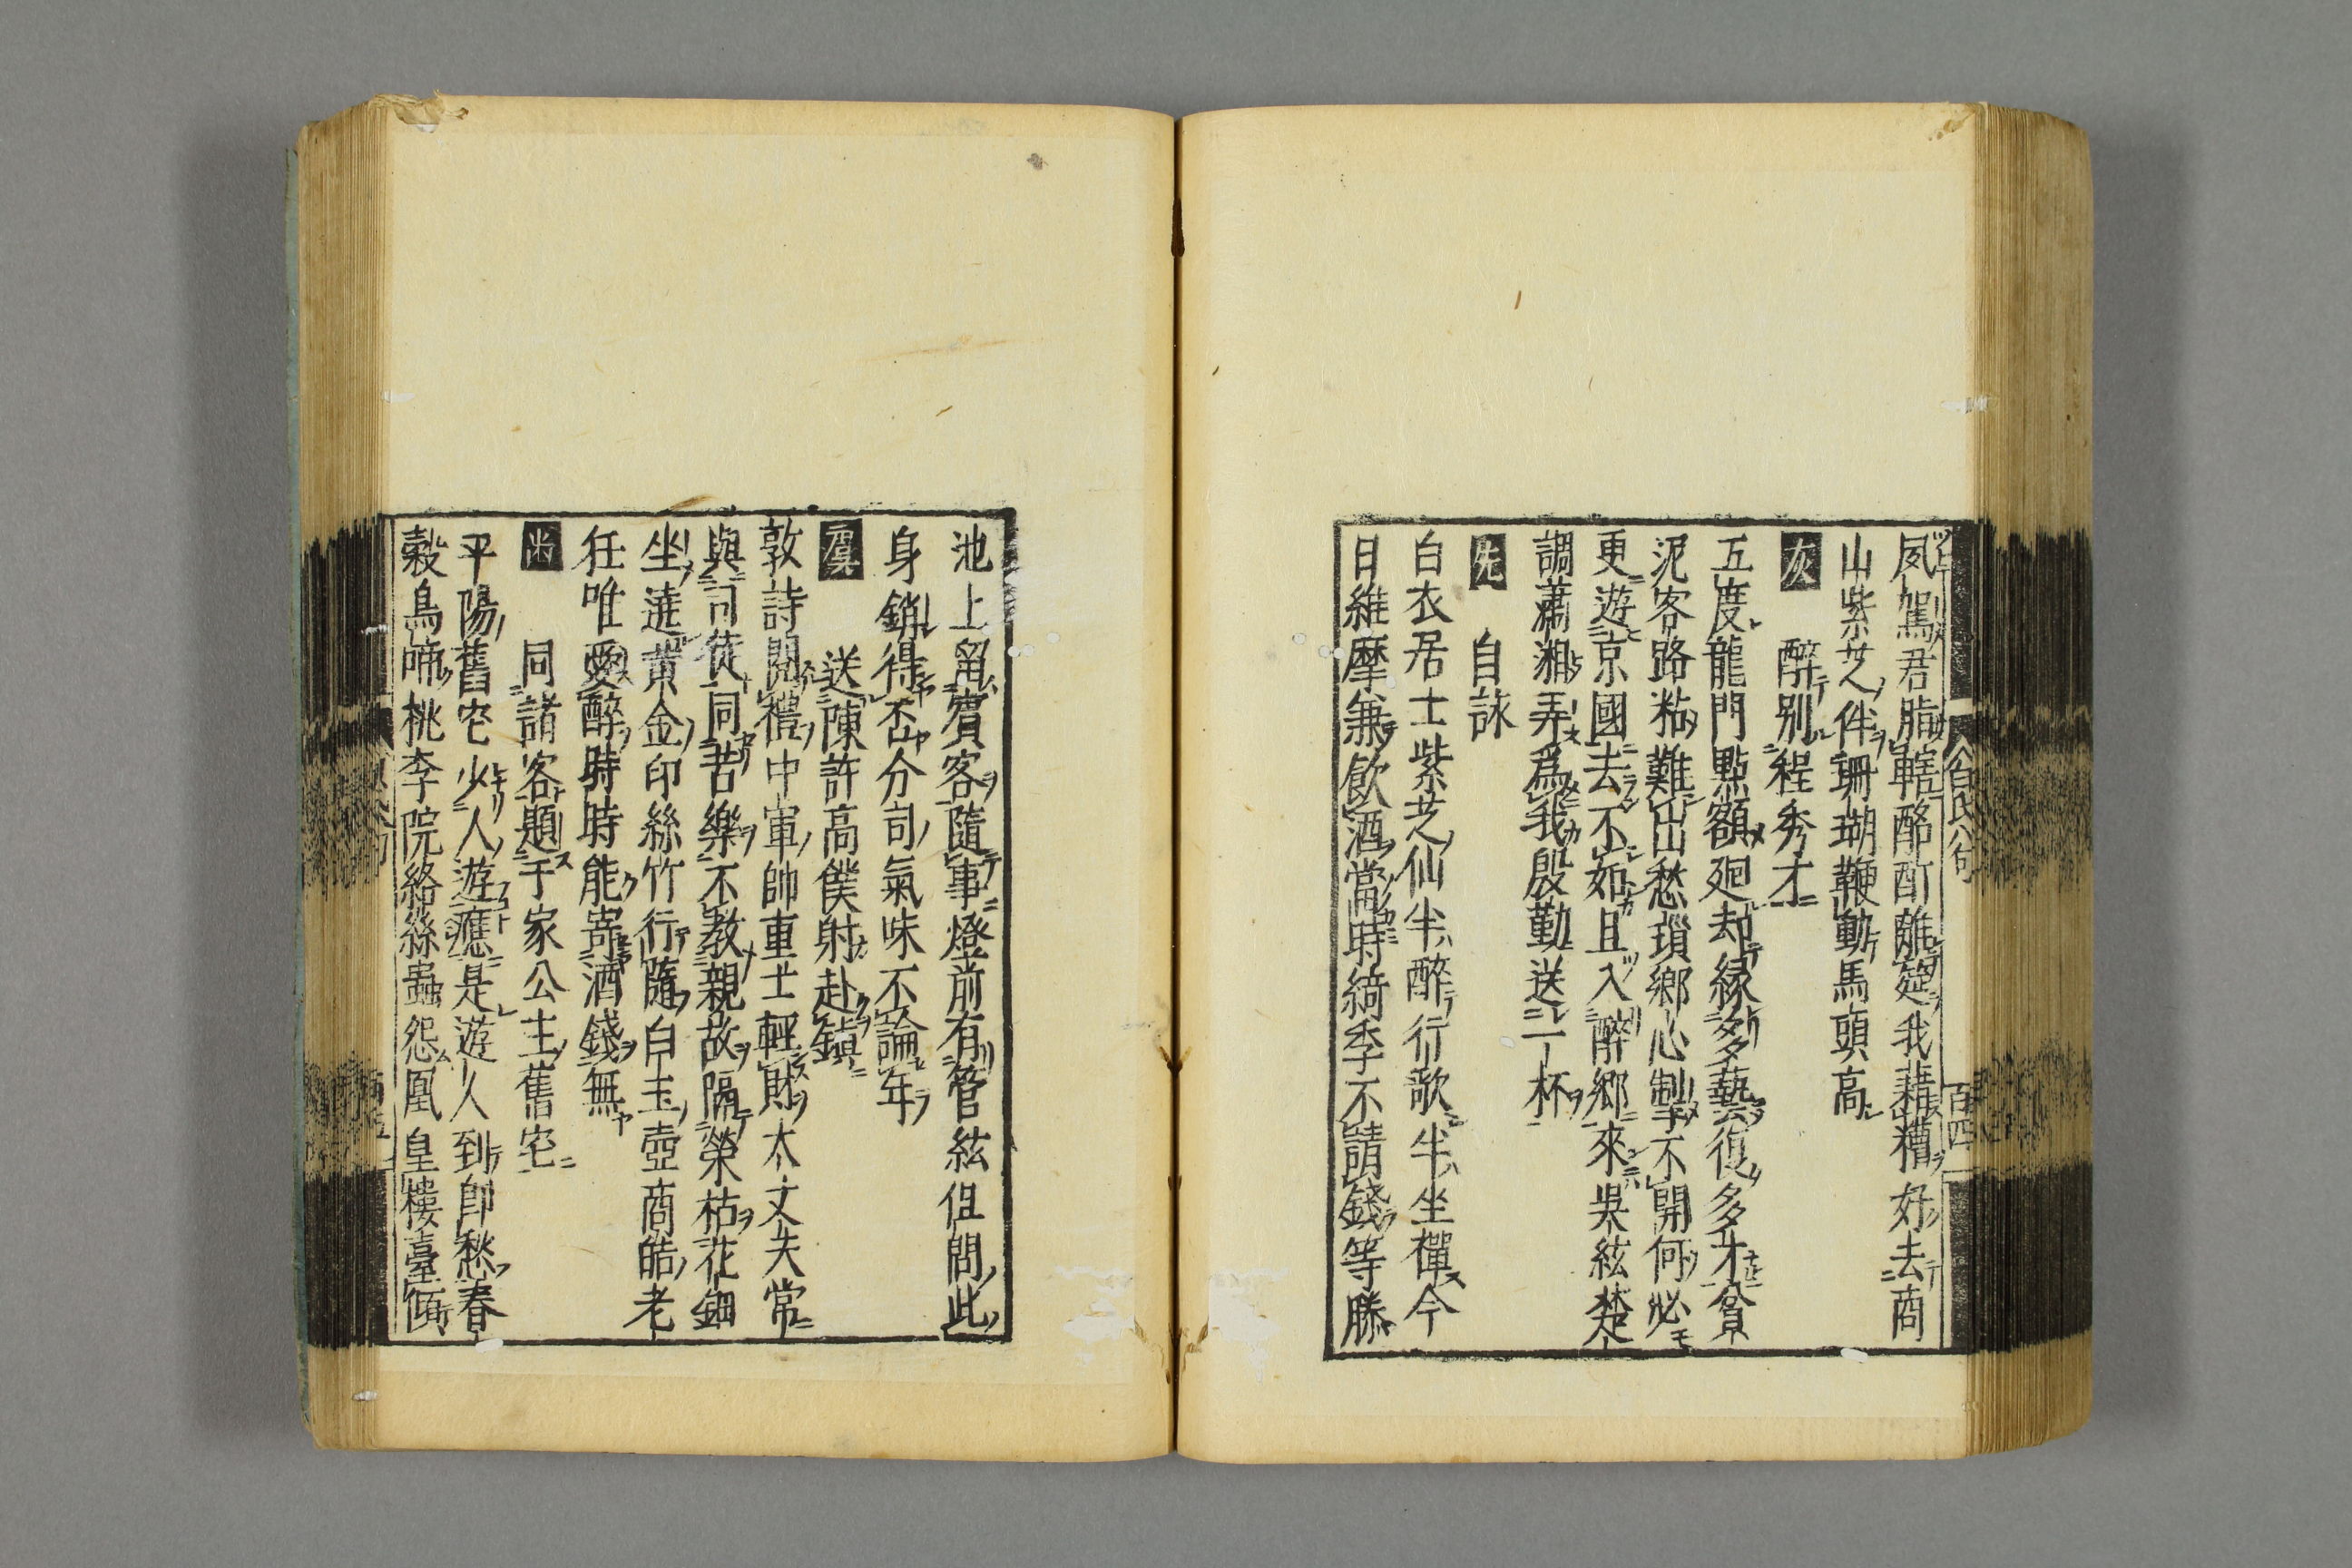 夙駕君脂轄酩酊離筵我藉糟好去商
山紫芝伴珊瑚鞭動馬頭高
灰　醉別程秀才
五度龍門點額廻却緣多藝復多才貧
泥客路粘難出愁瑣鄉心掣不開何必
更遊京國去不如且入醉鄉來吳絃楚
調瀟湘弄爲我殷勤送一杯
先　自詠
白衣居士紫芝仙半醉行歌半坐禪今
日維摩兼飲酒當時綺季不請錢等勝
白氏八句
百四
池上留賓客隨事燈前有管絃但問此
身銷得否分司氣味不論年
虞　送陳許高僕射赴鎮
敦詩閱禮中軍帥重士輕財太丈夫常
與司徒同苦樂不教親故隔榮枯花鈿
坐遶黃金印絲竹行隨白玉壺商皓老
狂唯愛醉時時能寄酒錢無
尤　同諸客題于家公主舊宅
平陽舊宅少人遊應是遊人到即愁春
穀鳥啼桃李院絡絲蟲怨鳳凰樓臺傾